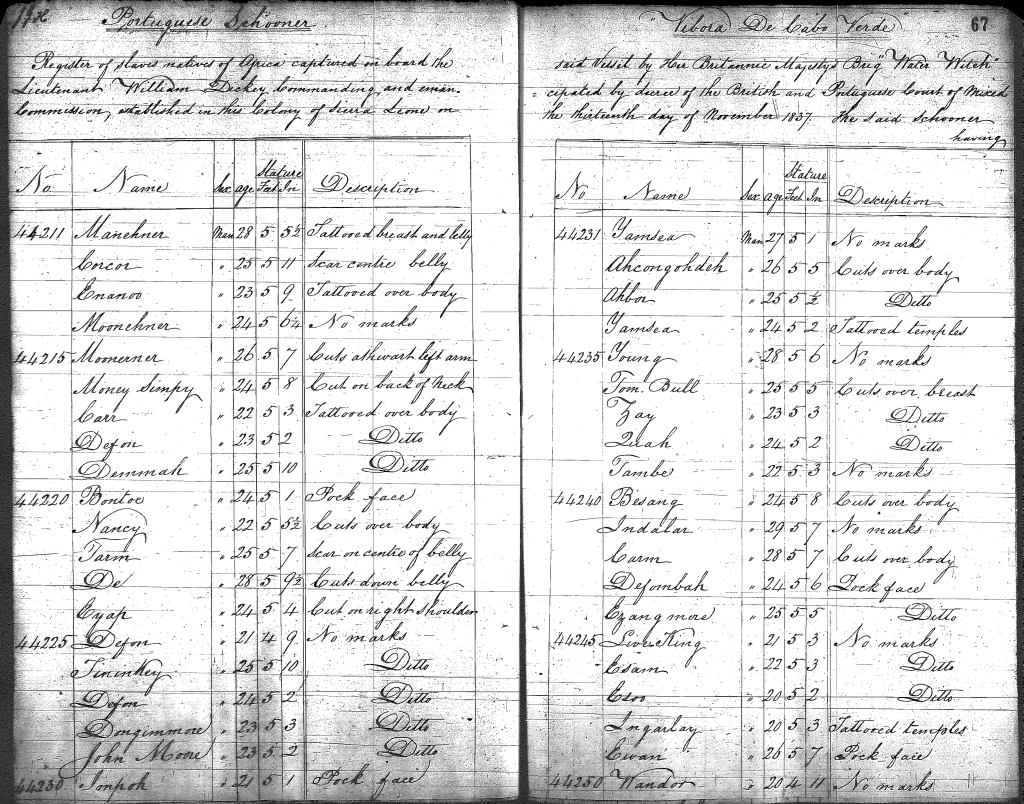 Portuguese Schooner
Register of slaves natives of Africa captured on board the
Lieutenant William Dickey Commanding and eman
Commission, established in this Colony of Sierra Leone on
No Name Sex age Stature Feet In Description
44211 Manehner Man 28 5 5½ Tattooed breast and belly
Corcor " 25 5 11 Scar centre belly
Enanoo " 23 5 9 Tattooed over body
Moonehner " 24 5 6¼ No marks
44215 Momerner " 26 5 7 Cuts athwart left arm
Money Simpy " 24 5 8 Cut on back of Neck
Carr " 22 5 3 Tattooed over body
Defon " 23 5 2 Ditto
Demmah " 25 5 10 Ditto
44220 Bontoe " 24 5 1 Pock face
Nancy " 22 5 5½ Cuts over body
Tarm " 25 5 7 Scar on centre of belly
De " 28 5 9½ Cuts down belly
Eyap " 24 5 4 Cut on right shoulder
44225 Defon " 21 4 9 No marks
Fininkey " 25 5 10 Ditto
Defon " 24 5 2 Ditto
Dongimmore " 23 5 3 Ditto
John Moore " 23 5 2 Ditto
44230 Impoh " 21 5 1 Pock face
"Vibora De Cabo Verde" 67
said Vessel by Her Britannic Majestys Brig "Water Witch"
cipated by decree of the British and Portuguese Court of Mixed
the thirteenth day of November 1837. The said Schooner
having
No Name Sex Age Stature Feet In Description
44231 Yamsea Man 27 5 1 No marks
Ahcongohdeh " 26 5 5 Cuts over body
Ahbor " 25 5 ½ Ditto
Yamsea " 24 5 2 Tattooed temples
44235 Young " 28 5 6 No marks
Tom. Bull " 25 5 5 Cuts over breast
Zay " 23 5 3 Ditto
Quah " 24 5 2 Ditto
Tambe " 22 5 3 No marks
44240 Besang " 24 5 8 Cuts over body
Indalar " 29 5 7 No marks
Carm " 28 5 7 Cuts over body
Defombah " 24 5 6 Pock face
Ezangmore " 25 5 5 Ditto
44245 Liver King " 21 5 3 No marks
Esam " 22 5 3 Ditto
Esoo " 20 5 2 Ditto
Ingarlay " 20 5 3 Tattooed temples
Ewan " 26 5 7 Pock face
44250 Wandor " 20 4 11 No marks